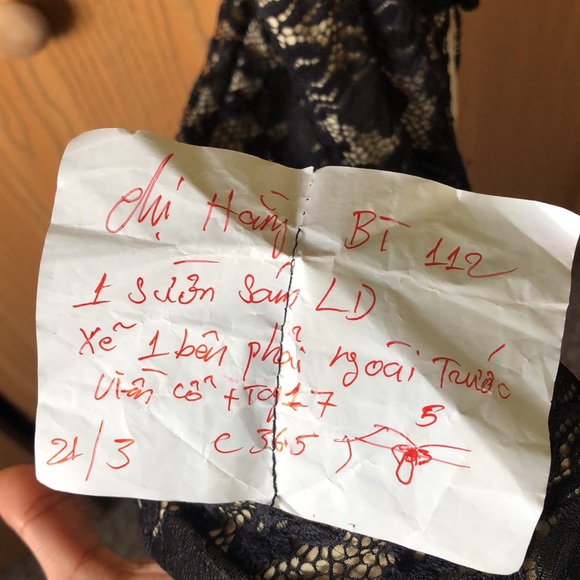 chị Hằng BT 112
1 sườn sám LD
xẻ 1 bên phải ngoài trước
viền cổ + Tay 1.7
21/3 c 36.5 5